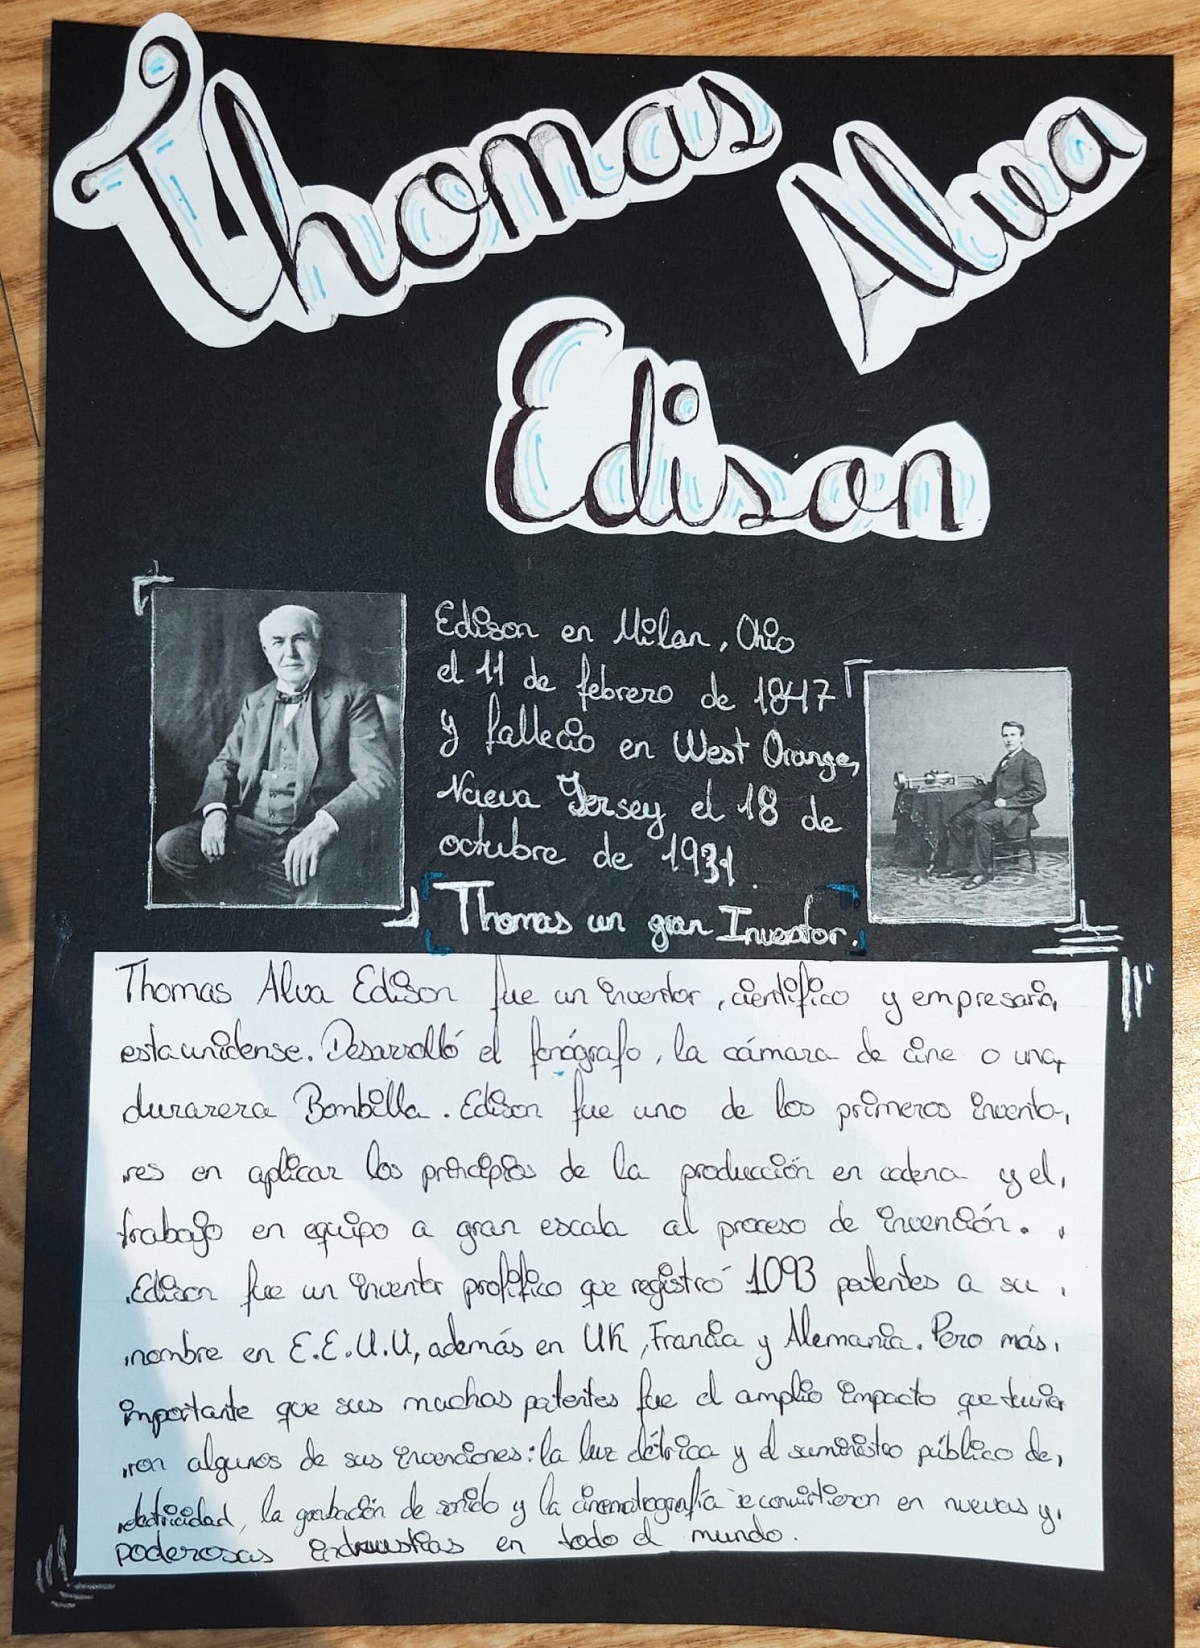 Thomas Alva
Edison
Edison en Milan, Ohio
el 11 de febrero de 1847
y fallecio en West Orange,
Nueva Jersey el 18 de
octubre de 1931.
Thomas un gran Inventor.
Thomas Alva Edison fue un inventor, científico y empresario
estaunidense. Desarrolló el fonógrafo, la cámara de cine o una
durarera Bombilla. Edison fue uno de los primeros invento-
res en aplicar los principios de la producción en cadena y el
trabajo en equipo a gran escala al proceso de invención.
Edison fue un inventor prolífico que registró 1093 patentes a su
nombre en E.E.U.U, además en UK, Francia y Alemania. Pero más
importante que sus muchas patentes fue el amplio impacto que tuvie
ron algunos de sus invenciones: la luz eléctrica y el suministro público de
electricidad, la grabación de sonido y la cinematografía se convirtieron en nuevas y
poderosas industrias en todo el mundo.